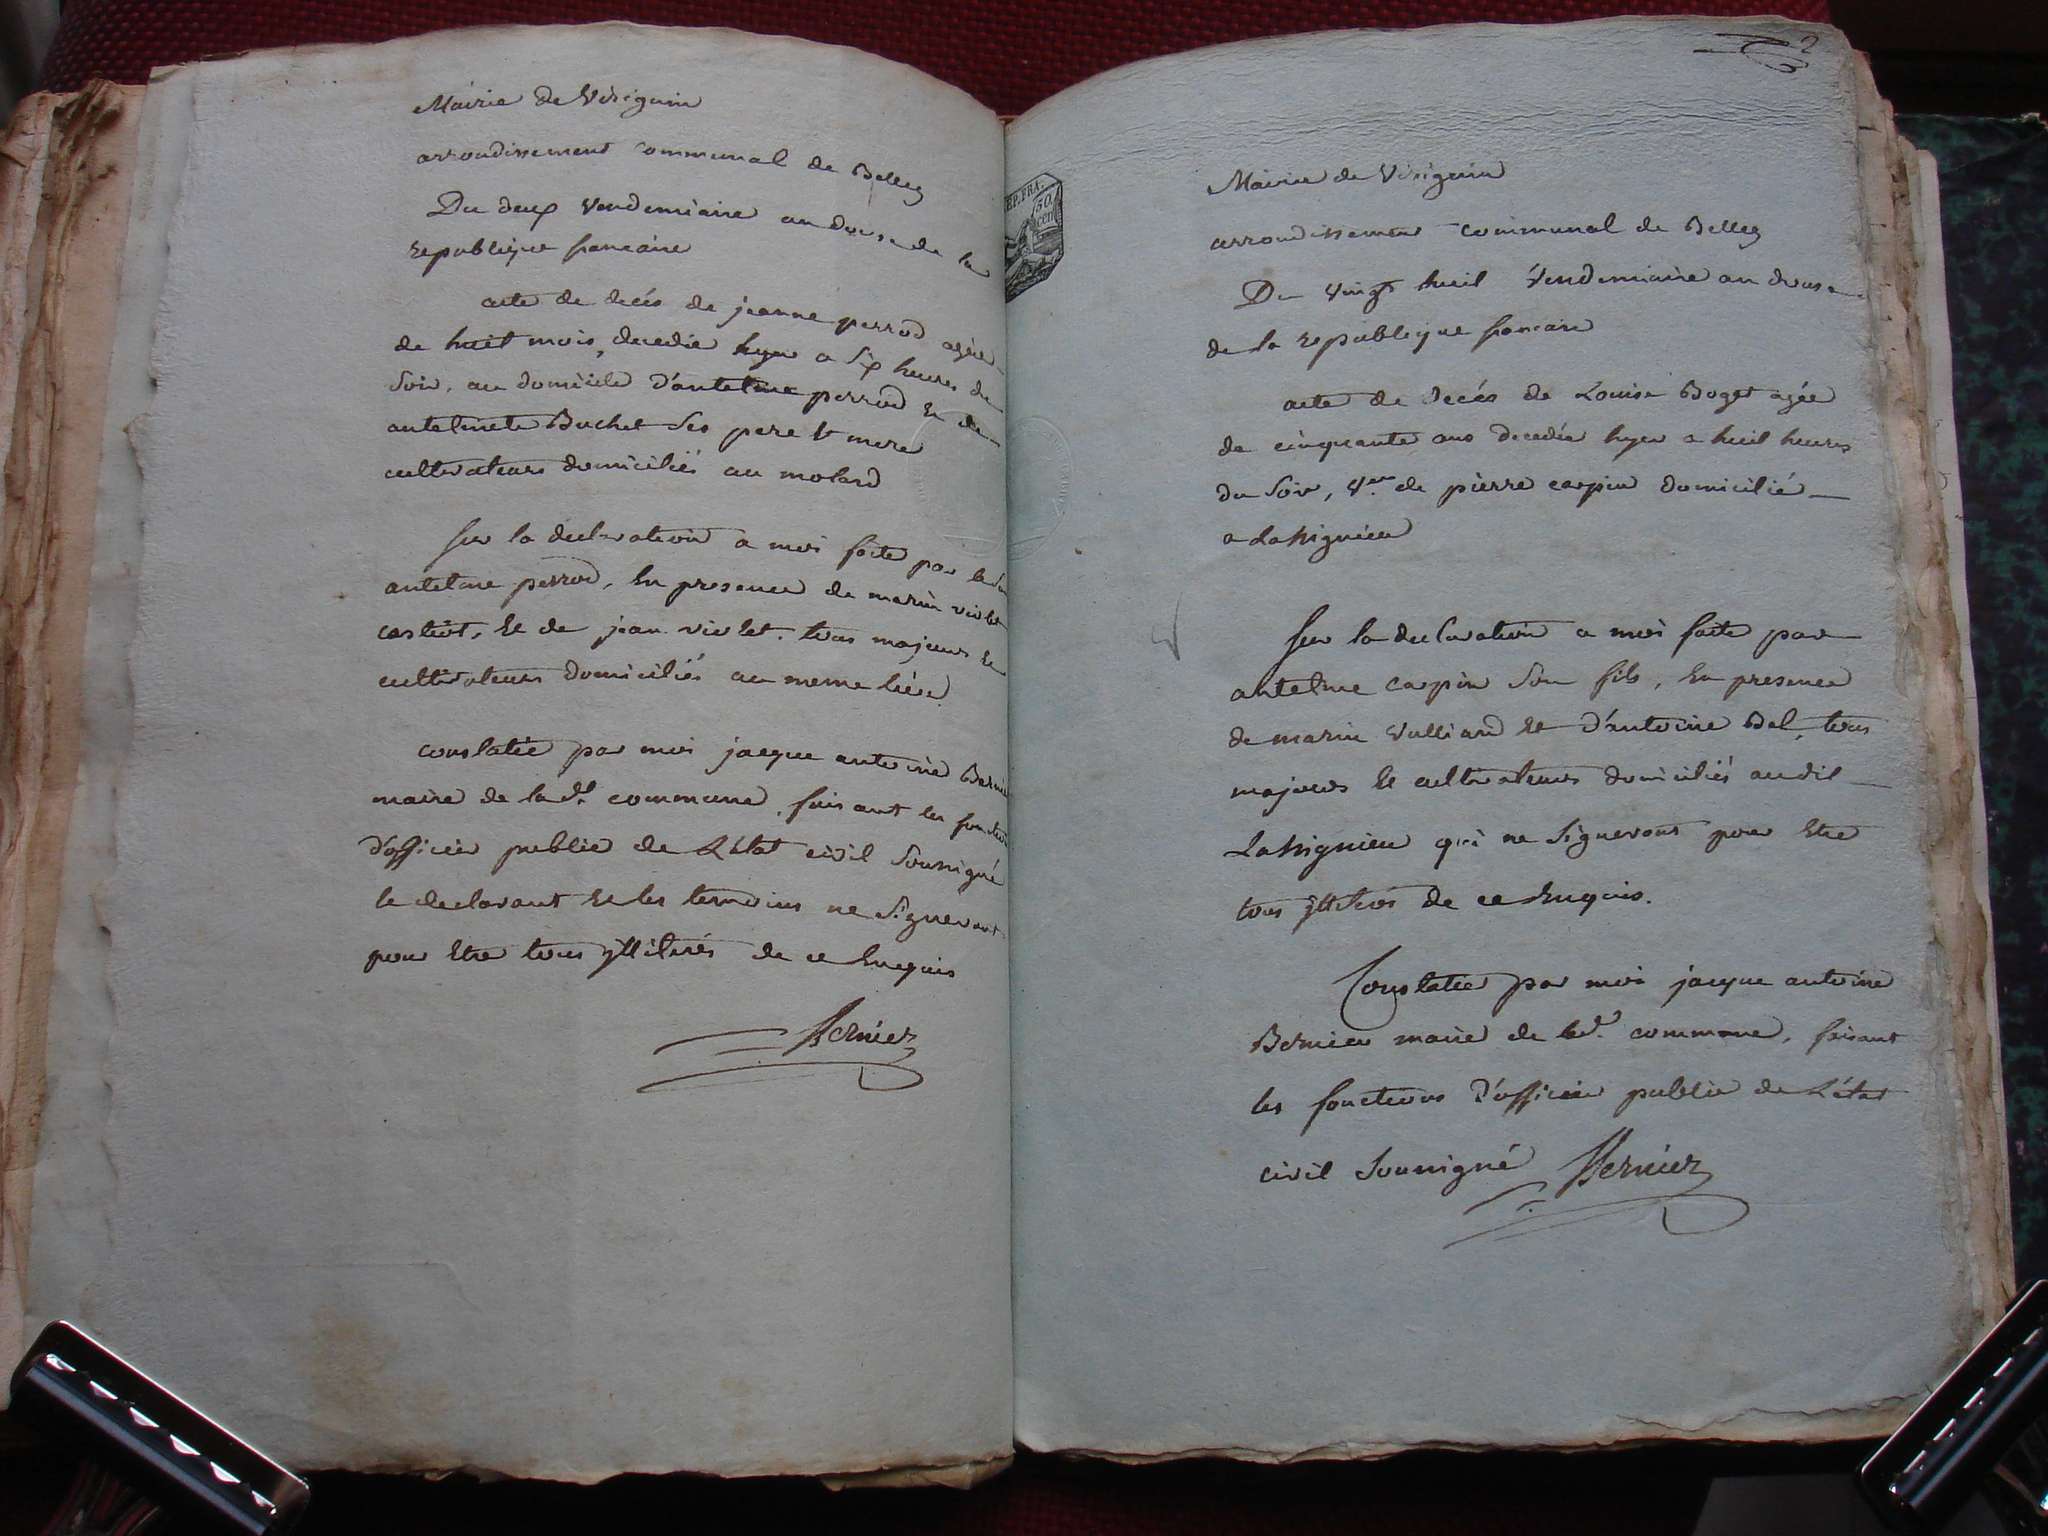 Mairie de Virignin
arrondissement communal de Belley
Du deux Vendemiaire an douse de la
republique francaise
acte de decés de jeanne perrod agée
de huit mois, decedée hyer a six heures du
soir, au domicile d'antelme perrod et de
antelmete Buchet ses pere et mere
cultivateurs domiciliés au molard
sur la declaration a moi faite par led
antelme perrod, en presence de marin violet
castiot, et de jean violet, tous majeurs et
cultivateurs domiciliés au meme lieu
constatée par moi jacque antoine Bernier
maire de lad. commune, faisant les fonctions
d'officier public de L'état civil soussigné
le declarant et les temoins ne signeront
pour etre tous yllitérés de ce Enquis
Bernier
2
EP. FRA.
50
cent
Mairie de Virignin
arrondissement communal de Belley
Du vingt huit Vendemiaire an douse
de la republique francaise
acte de decés de Louise Boget agée
de cinquante ans decedée hyer a huit heures
du soir, Ve. de pierre carpin domicilié
a Lassignieu
sur la declaration a moi faite par
antelme carpin son fils, en presence
de marin Vulliard et d'antoine Bel, tous
majeurs et cultivateurs domiciliés audit
Lassignieu qui ne signeront pour etre
tous yllitérés de ce enquis.
Constatée par moi jacque antoine
Bernier maire de lad. commune, faisant
les fonctions d'officier public de L'état
civil soussigné Bernier